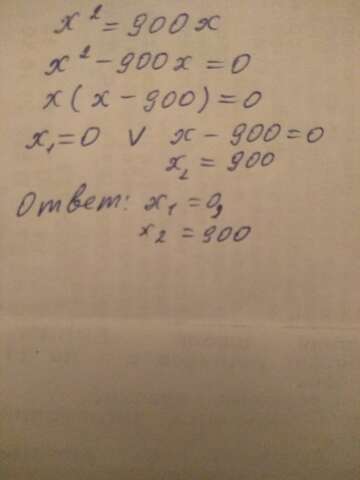 x² = 900x
x² - 900x = 0
x(x - 900) = 0
x₁ = 0 V x - 900 = 0
x₂ = 900
Ответ: x₁ = 0,
x₂ = 900